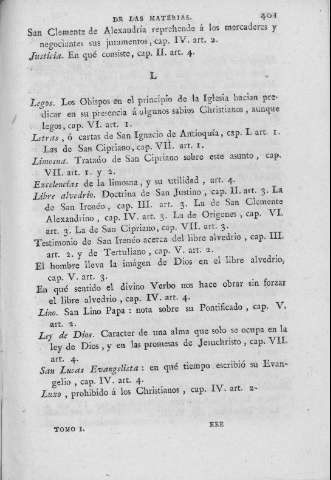 DE LAS MATERIAS. 401
San Clemente de Alexandría reprehende á los mercaderes y
negociantes sus juramentos, cap. IV. art. 2.
Justicia. En qué consiste, cap. II. art. 4.
L
Legos. Los Obispos en el principio de la Iglesia hacian pre-
dicar en su presencia á algunos sabios Christianos, aunque
legos, cap. VI. art. 1.
Letras, ó cartas de San Ignacio de Antioquía, cap. I. art. 1.
Las de San Cipriano, cap. VII. art. 1.
Limosna. Tratado de San Cipriano sobre este asunto, cap.
VII. art. 1. y 2.
Excelencias de la limosna, y su utilidad, art. 4.
Libre alvedrio. Doctrina de San Justino, cap. II. art. 3. La
de San Irenéo, cap. III. art. 3. La de San Clemente
Alexandrino, cap. IV. art. 3. La de Origenes, cap. VI.
art. 3. La de San Cipriano, cap. VII. art. 3.
Testimonio de San Irenéo acerca del libre alvedrio, cap. III.
art. 2. y de Tertuliano, cap. V. art. 2.
El hombre lleva la imágen de Dios en el libre alvedrio,
cap. V. art. 3.
En qué sentido el divino Verbo nos hace obrar sin forzar
el libre alvedrio, cap. IV. art. 4.
Lino. San Lino Papa: nota sobre su Pontificado, cap. V.
art. 2.
Ley de Dios. Caracter de una alma que solo se ocupa en la
ley de Dios, y en las promesas de Jesuchristo, cap. VII.
art. 4.
San Lucas Evangelista: en qué tiempo escribió su Evan-
gelio, cap. IV. art. 4.
Luxo, prohibido á los Christianos, cap. IV. art. 2.
TOMO I. EEE